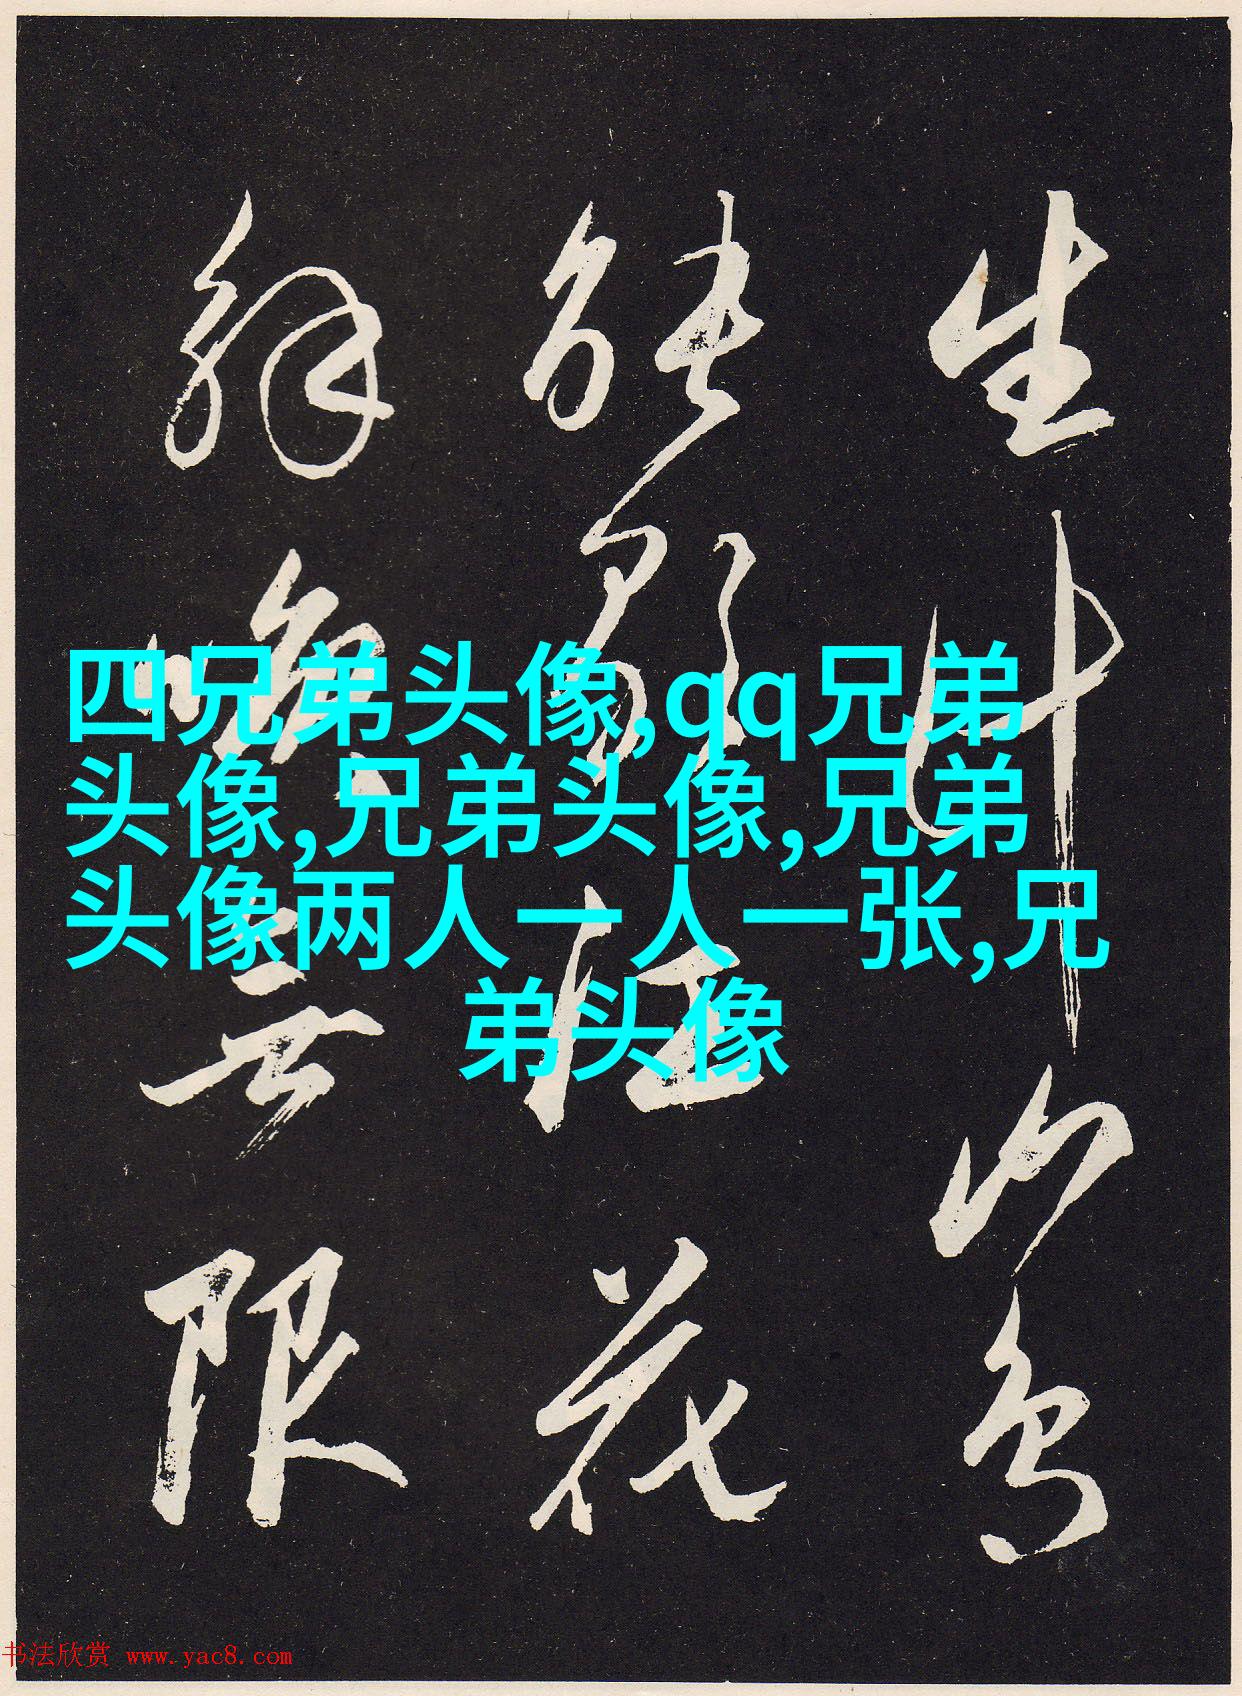 四兄弟头像,qq兄弟
头像,兄弟头像,兄弟
头像两人一人一张,兄
弟头像
生山鳥
能花
解无限
书法欣赏 www.yac8.com